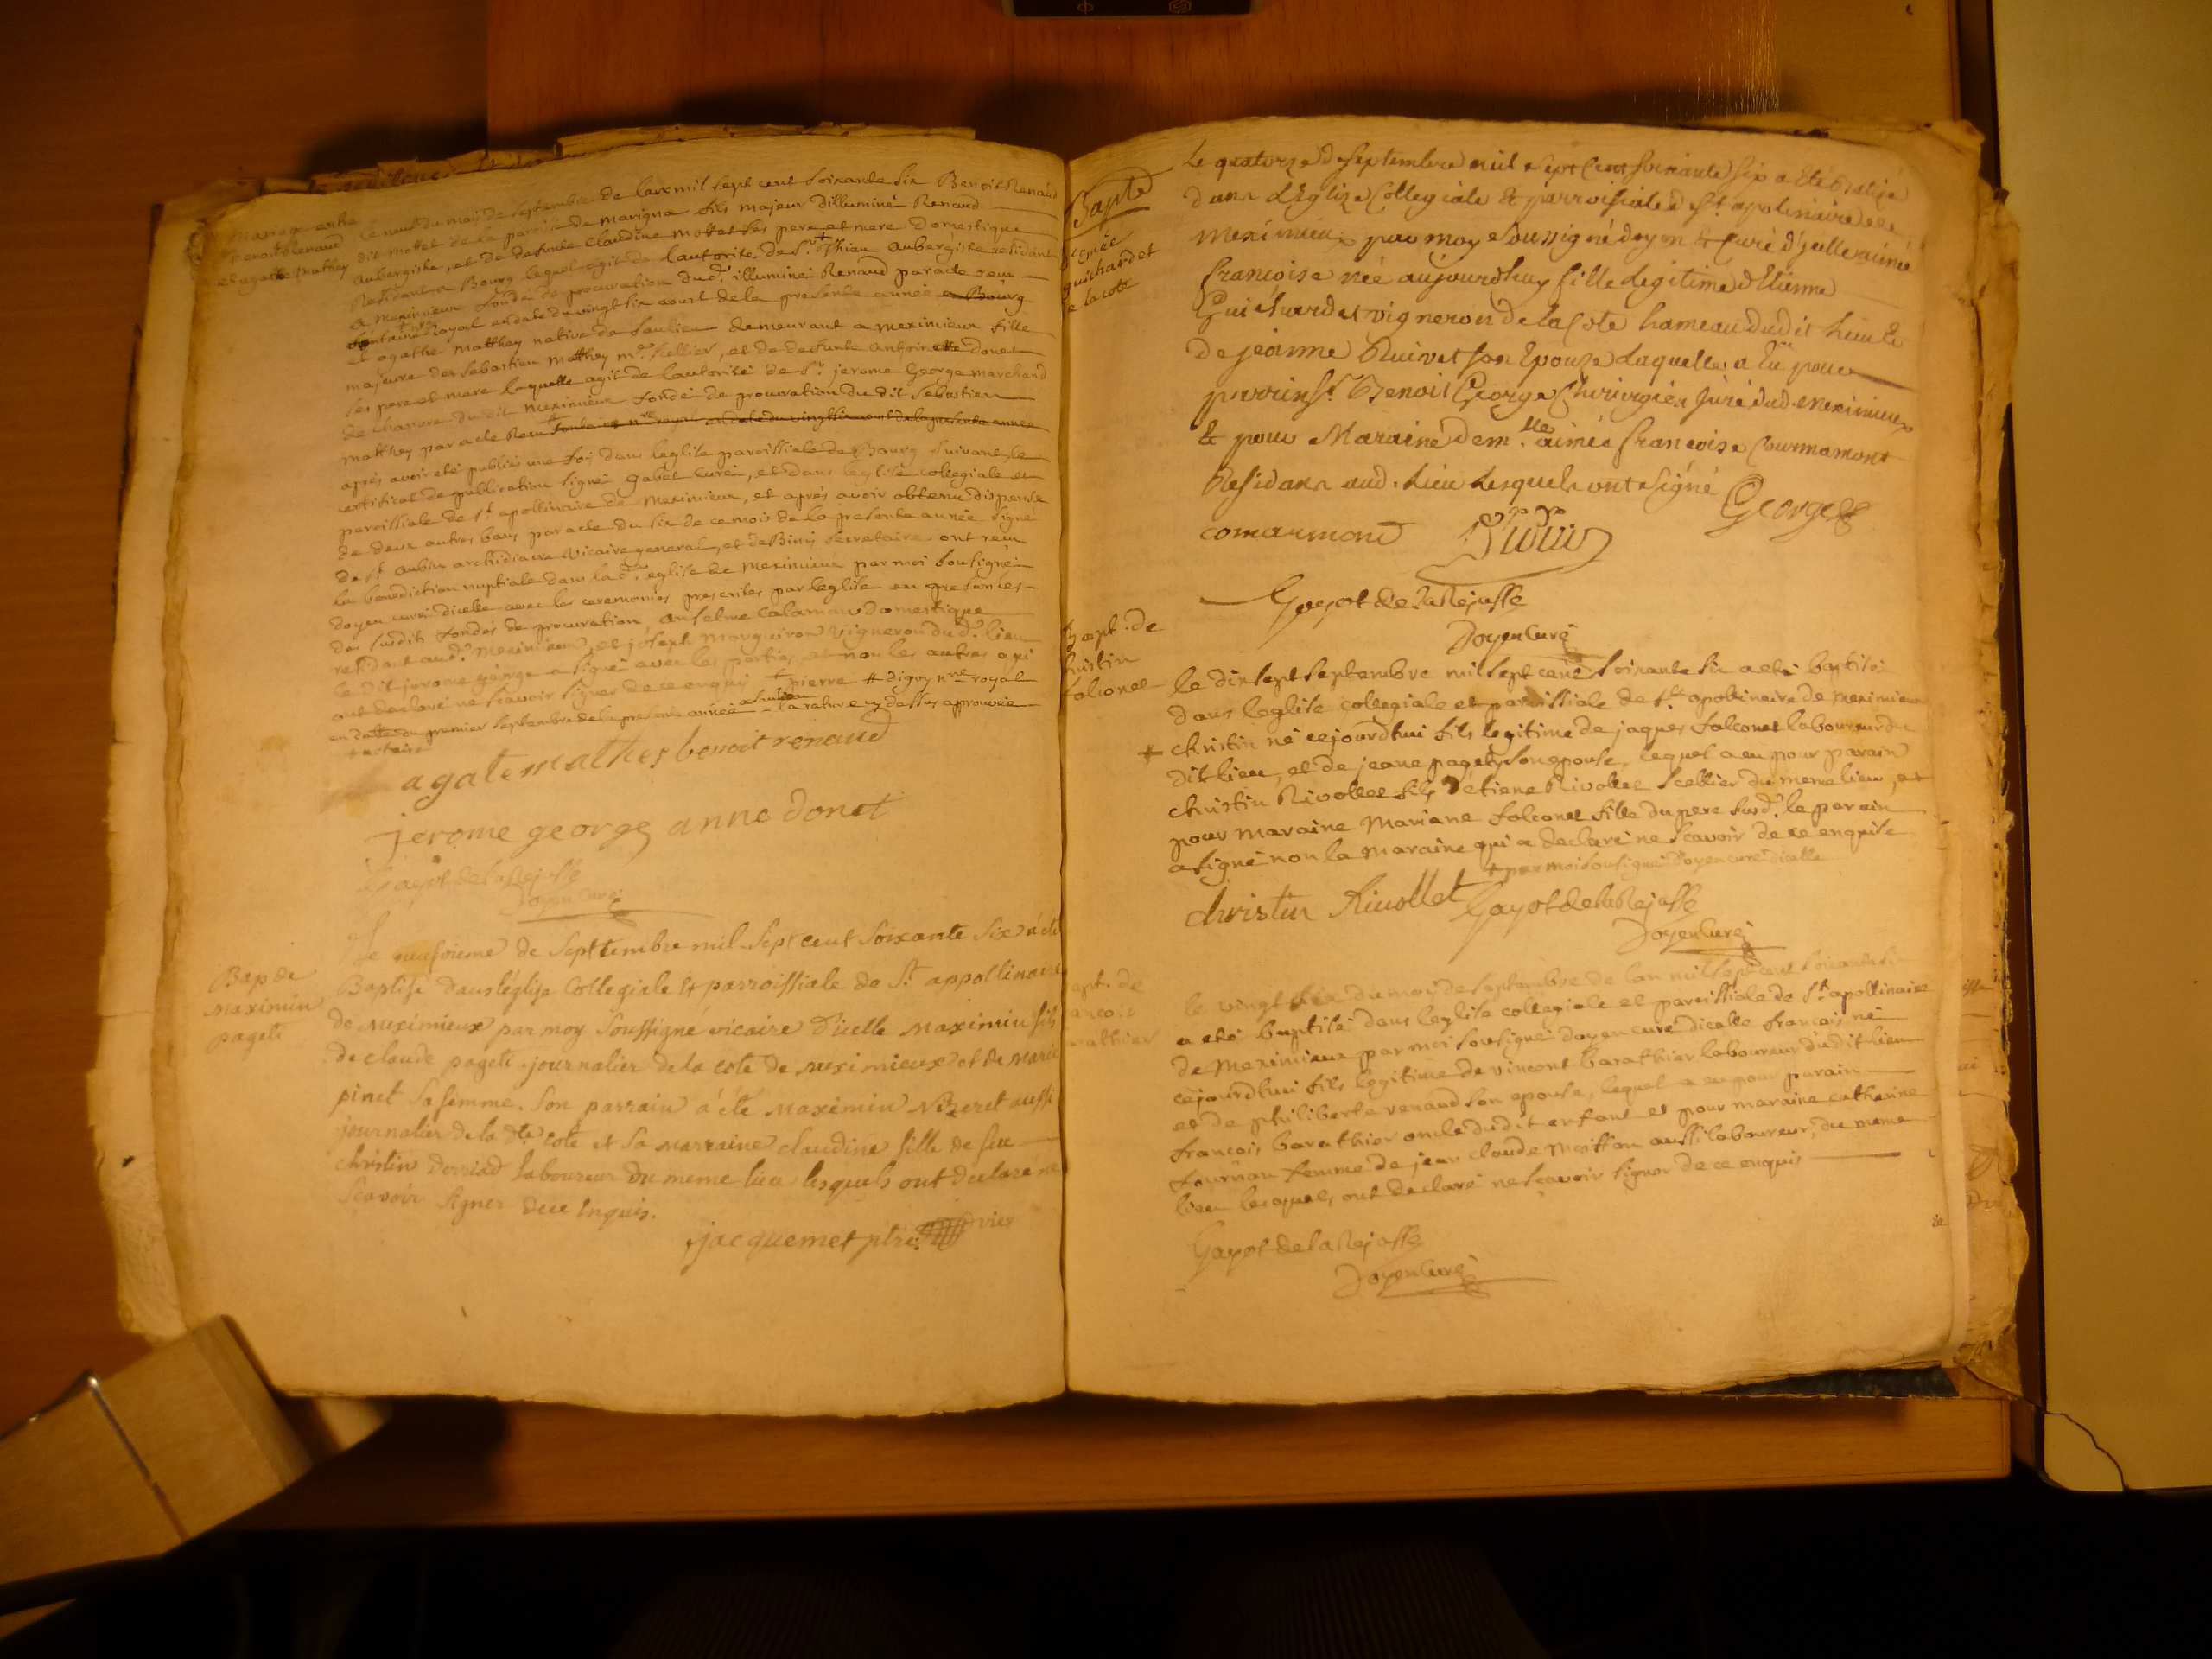 Mariage entre
Benoit Renaud
et agathe Matthey
Le neuf du moy de septembre de lan mil sept cent soixante six Benoit Renaud
dit mottet de la paroisse de marigna fils majeur dilluminé Renaud
aubergiste, et de defunte Claudine mottet ses pere et mere domestique
Residant a Bourg lequel agit de lautorité de Sr + Thian aubergiste residant
a meximieux fondé de procuration dud. illuminé Renaud par acte reçu
fontaine Royal en date du vingt six aoust de la presente année a Bourg
et agathe Matthey native de Saulieu demeurant a meximieux fille
majeure de Sebastien Matthey me Sellier, et de defunte antoinette donet
ses pere et mere laquelle agit de lautorité de Sr jerome George marchand
de chanvre dudit meximieux fondé de procuration du dit Sebastien
matthey par acte Reçu fontaine nre royal en date du vingt six aout de la presente année
après avoir eté publiés une foy dans leglise paroissiale de Bourg suivant le
certificat de publication signé gabet curé, et dans leglise collegiale et
paroissiale de st apollinaire de meximieux, et après avoir obtenu dispense
de deux autres bans par acte du six de ce mois de la presente année signé
de st aubin archidiacre vicaire general, et de Biny secretaire ont reçu
la bénédiction nuptiale dans lad. eglise de meximieux par moi sousigné
doyen curé dicelle avec les ceremonies prescrites par leglise en presences
des susdits fondés de procuration, anselme Calamau domestique
residant aud. meximieux, et joseph morguiron vigneron du d. lieu
le dit jerome george a signé avec les parties et non les autres qui
ont declaré ne scavoir signer de ce enquis + pierre # digoy nre royal
en datte du premier septembre de la presente année a saulieu la rature cy dessus aprouvée
+ notaire
agate mathey benoit renaud
jerome george anne donet
Gayot de la Rejasse
Doyen Curé
Bap de
maximin
pageti
Le neufvieme de septtembre mil sept cent soixante six a été
Baptisé dans léglise Collegiale et parroissiale de St appollinaire
de meximieux par moy soussigné vicaire d'icelle maximin fils
de claude pageti journalier de la cote de meximieux et de marie
pinet sa femme. son parrain a été maximin Nizeret aussi
journalier de la dte cote et sa marraine claudine fille de feu
christin dorriad laboureur du meme lieu lesquels ont declaré ne
scavoir signer de ce enquis.
jacquemet ptre vic
Bapte
d'emée
guichardet
de la cote
Le quatorze de septembre mil sept cent soixante six a été batizé
dans l'Eglize Collegiale & parroissiale de St apolinaire de
meximieux par moy soussigné doyen & curé d'jcelle aimée
françoise née aujourdhuy fille legitime d'Etienne
Guichardet vigneron de la Cote hameau dudit lieu &
de jeanne Ruivet son Epouze laquelle a Eü pour
parrin Sr Benoit George Chirurgien juré dud. meximieux
& pour Maraine demlle aimée francoise Courmamont
Residans aud. Lieu Lesquels ont signé
George
comarmond
Gayot de la Rejasse
Doyen Curé
Bapt. de
christin
falconet
le dix sept septembre mil sept cent soixante six a eté batisé
dans leglise collegiale et paroissiale de st apollinaire de meximieux
+ christin né cejourdhui fils legitime de jaques falconet laboureur du
dit lieu, et de jeane pagety son epouse, lequel a eu pour parain
christin Rivollet fils d'étiene Rivollet scellier du meme lieu, et
pour maraine Mariane falconet fille du pere susd. le parain
a signé non la maraine qui a declaré ne scavoir de ce enquise
+ par moi sousigné doyen curé dicelle
christin Riuollet Gayot de la Rejasse
Doyen Curé
bapt. de
francois
barathier
le vingt six du moy de septembre de lan mil sept cent soixante six
a eté baptisé dans leglise collegiale et paroissiale de st apollinaire
de Meximieux par moi sousigné doyen curé dicelle francois né
cejourdhui fils legitime de vincent barathier laboureur dudit lieu
et de philiberte renaud son epouse, lequel a eu pour parain
francois barathier oncle dudit enfant et pour maraine catherine
fournon femme de jean claude moisson aussi laboureur, du meme
lieu lesquels ont declaré ne scavoir signer de ce enquis
Gayot de la Rejasse
Doyen Curé